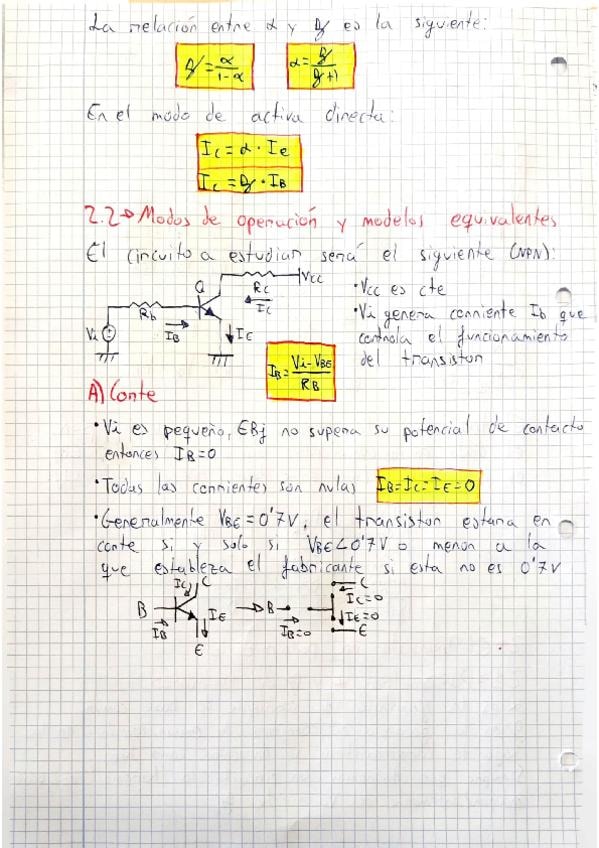 La relación entre α y β es la siguiente:
β = α/(1-α)   α = β/(β+1)
En el modo de activa directa:
Ic = α · Ie
Ic = β · IB
2.2→ Modos de operación y modelos equivalentes
El circuito a estudiar será el siguiente (NPN):
Vcc
Rc
Ic
Q
Rb
IB
IE
Vi
IB = (Vi - VBE)/RB
• Vcc es cte
• Vi genera corriente Ib que
controla el funcionamiento
del transistor
A) Corte
• Vi es pequeño, EBj no supera su potencial de contacto
entonces IB=0
• Todas las corrientes son nulas IB=IC=IE=0
• Generalmente VBE = 0'7V, el transistor estara en
corte si y solo si VBE<0'7V o menor a la
que estableza el fabricante si esta no es 0'7V
Ic C
B
IB
IE
E
→ B
IB=0
C
Ic=0
IE=0
E